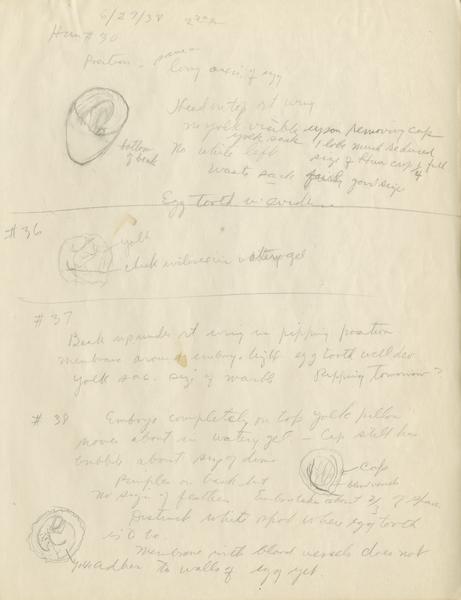 6/27/38
# 30
Position -
long axis of egg
Head on top rt wing
no yolk visible upon removing cap
yolk sack 1 lobe much reduced
No white left size of
full
bottom of beak
Waste sack good size
Egg tooth
# 36
yolk
chick in watery gel
# 37
Beak up under rt wing in pipping position
membrane around embryo light egg tooth well dev
yolk sac. size of marble Pipping tomorrow?
# 38 Embryo completely on top yolk pillow
moves about in watery gel - Cap still has
bubble about size of dime
Cap
blood vessels
Pimples on back but
No sign of feather Embryo takes about 2/3 of space
Distinct white spot where egg tooth
is to
Membrane with blood vessels does not
yolk adhere to walls of egg yet